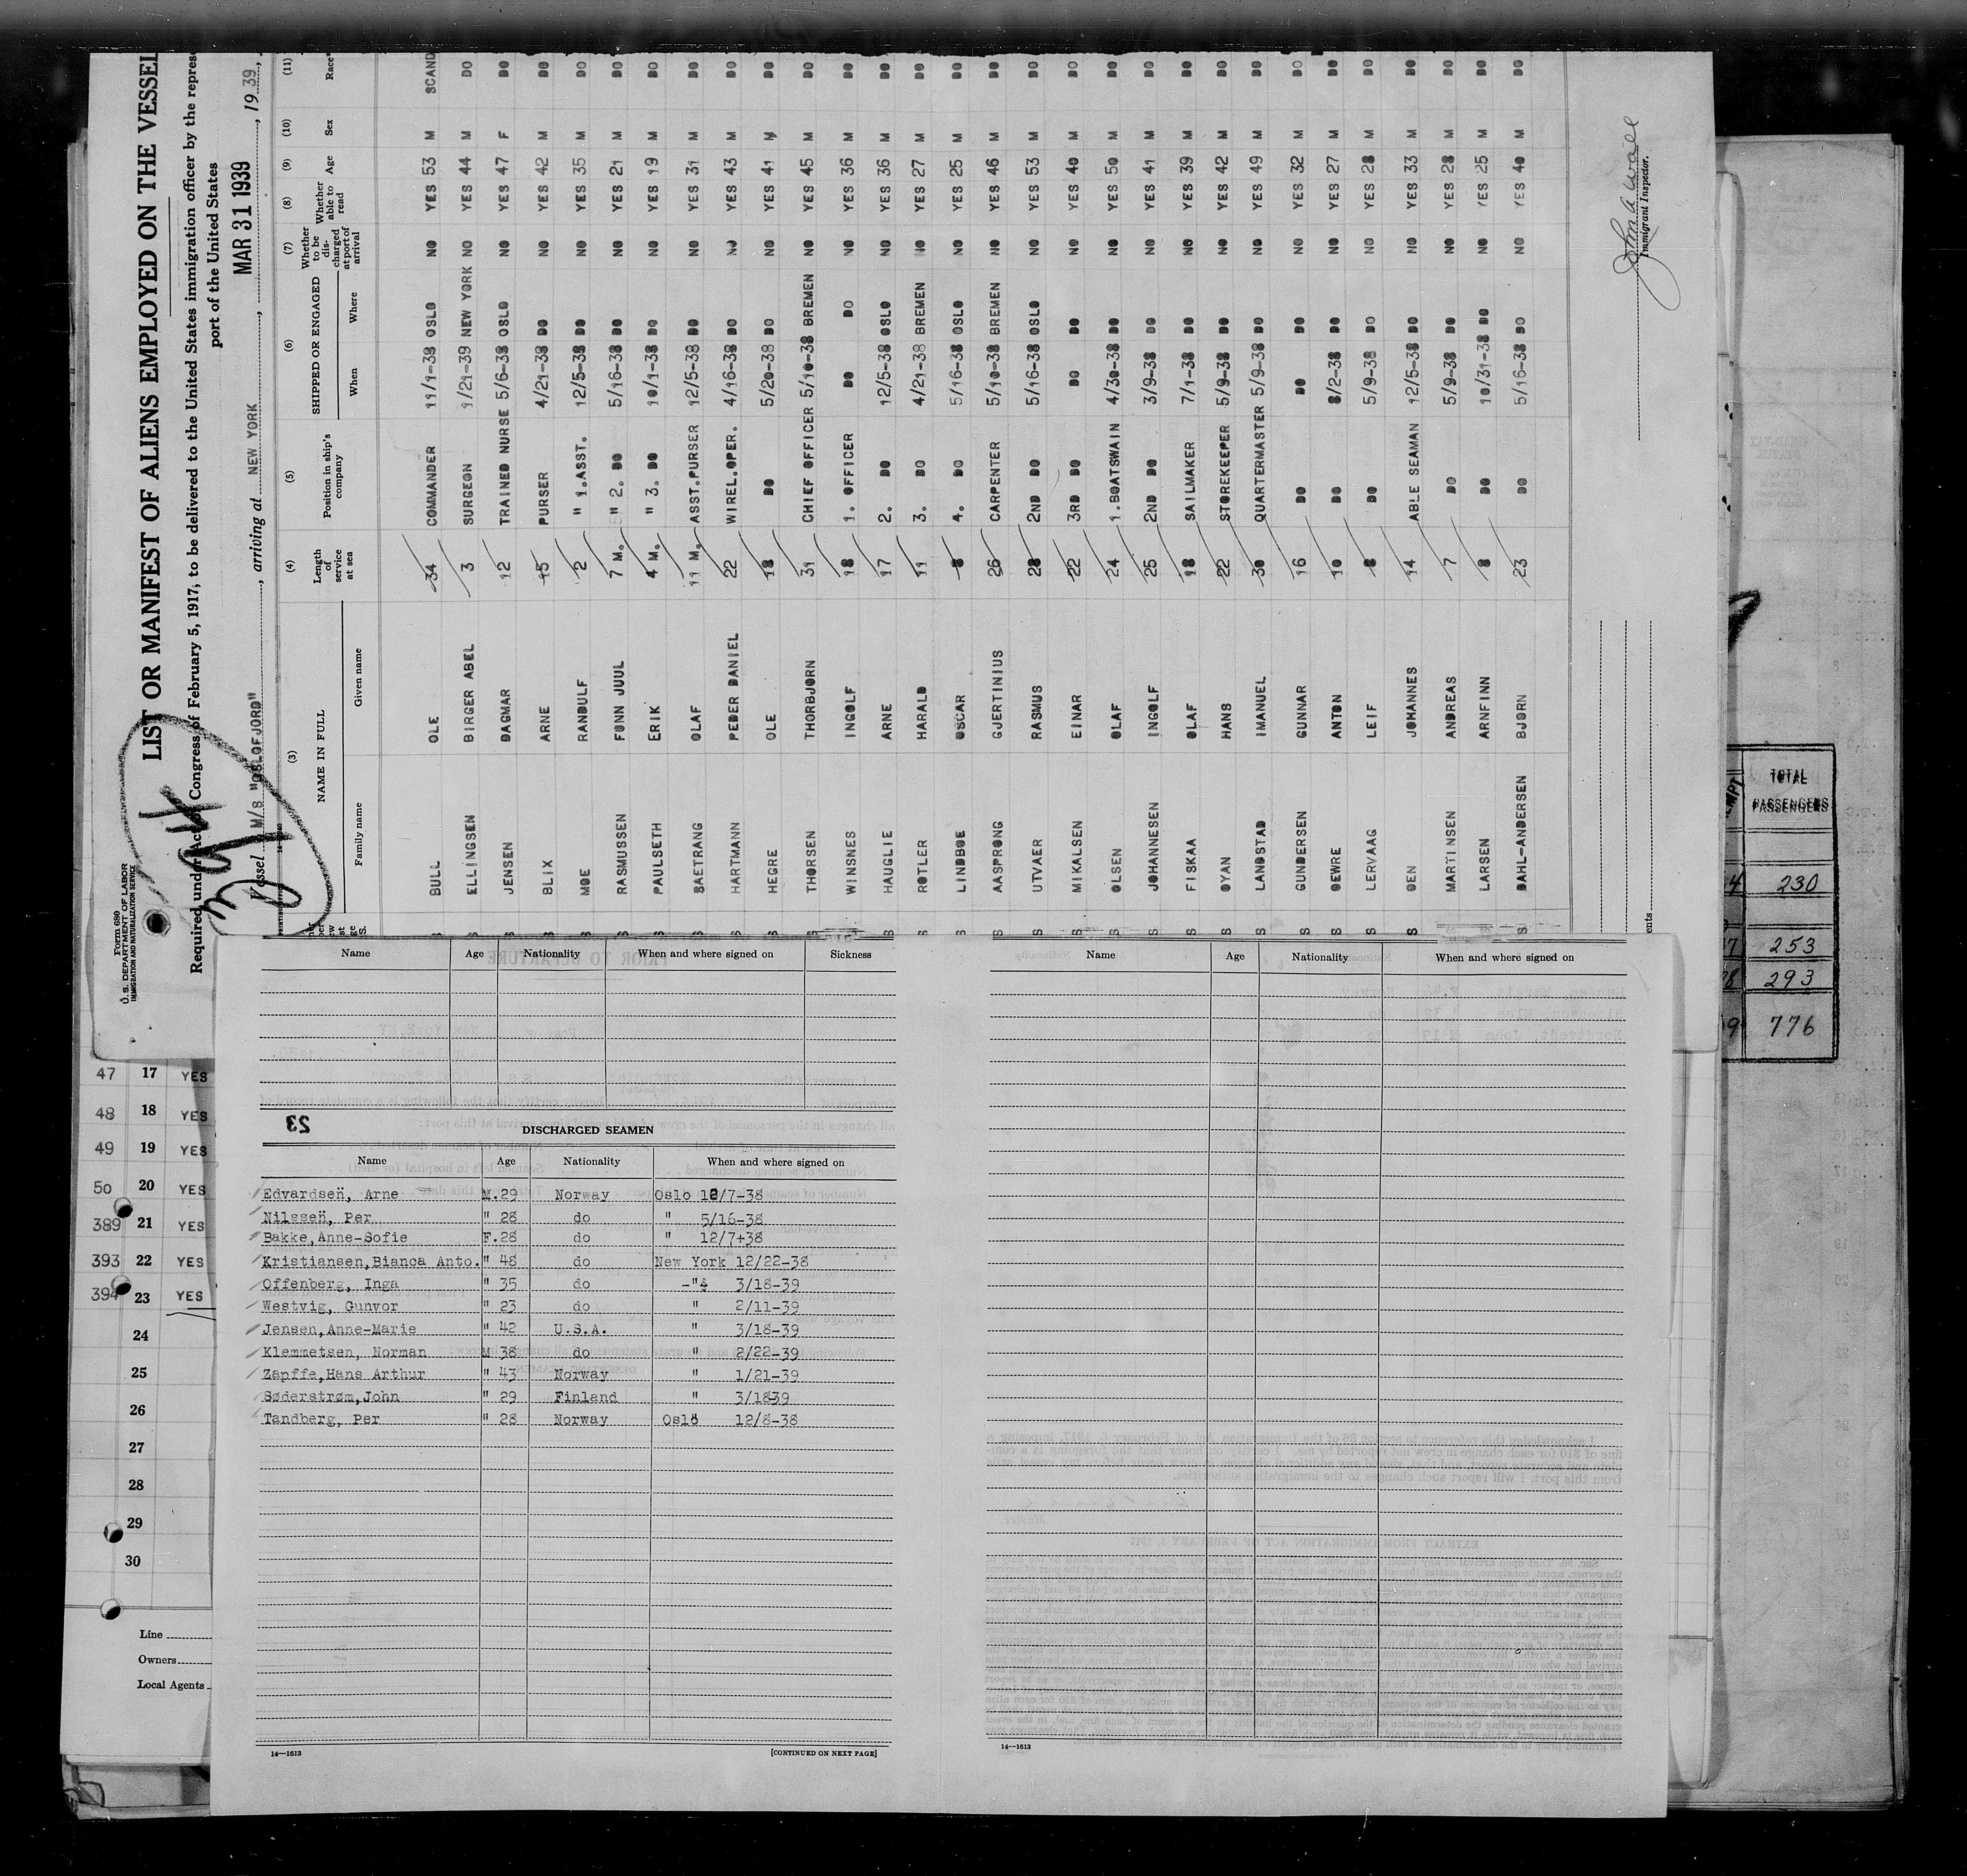 Form 680
U. S. DEPARTMENT OF LABOR
IMMIGRATION AND NATURALIZATION SERVICE
LIST OR MANIFEST OF ALIENS EMPLOYED ON THE VESSEL
Required under Act of Congress of February 5, 1917, to be delivered to the United States immigration officer by the repres
port of the United States
Vessel M/S "OSLOFJORD", arriving at NEW YORK, MAR 31 1939, 1939,
(3) (4) (5) (6) (7) (8) (9) (10) (11)
NAME IN FULL Length of service at sea Position in ship's company SHIPPED OR ENGAGED Whether to be discharged at port of arrival Whether able to read Age Sex Race*
Family name Given name When Where
BULL OLE 34 COMMANDER 11/1-38 OSLO NO YES 53 M SCAND
ELLINGSEN BIRGER ABEL 3 SURGEON 1/21-39 NEW YORK NO YES 44 M DO
JENSEN DAGMAR 12 TRAINED NURSE 5/6-38 OSLO NO YES 47 F DO
BLIX ARNE 15 PURSER 4/21-38 DO NO YES 42 M DO
MOE RANDULF 2 " 1.ASST. 12/5-38 DO NO YES 35 M DO
RASMUSSEN FONN JUUL 7 M. " 2. DO 5/16-38 DO NO YES 21 M DO
PAULSETH ERIK 4 M. " 3. DO 10/1-38 DO NO YES 19 M DO
SAETRANG OLAF 11 M. ASST.PURSER 12/5-38 DO NO YES 31 M DO
HARTMANN PEDER DANIEL 22 WIREL.OPER. 4/16-38 DO NO YES 43 M DO
HEGRE OLE 18 DO 5/20-38 DO NO YES 41 M DO
THORSEN THORBJORN 31 CHIEF OFFICER 5/10-38 BREMEN NO YES 45 M DO
WINSNES INGOLF 18 1. OFFICER DO DO NO YES 36 M DO
HAUGLIE ARNE 17 2. DO 12/5-38 OSLO NO YES 36 M DO
ROTLER HARALD 11 3. DO 4/21-38 BREMEN NO YES 27 M DO
LINDBOE OSCAR 8 4. DO 5/16-38 OSLO NO YES 25 M DO
AASPRONG GJERTINIUS 26 CARPENTER 5/10-38 BREMEN NO YES 46 M DO
UTVAER RASMUS 28 2ND DO 5/16-38 OSLO NO YES 53 M DO
MIKALSEN EINAR 22 3RD DO DO DO NO YES 40 M DO
OLSEN OLAF 24 1.BOATSWAIN 4/30-38 DO NO YES 50 M DO
JOHANNESEN INGOLF 25 2ND DO 3/9-38 DO NO YES 41 M DO
FISKAA OLAF 18 SAILMAKER 7/1-38 DO NO YES 39 M DO
OYAN HANS 22 STOREKEEPER 5/9-38 DO NO YES 42 M DO
LANDSTAD IMANUEL 30 QUARTERMASTER 5/9-38 DO NO YES 49 M DO
GUNDERSEN GUNNAR 16 DO DO DO NO YES 32 M DO
OEWRE ANTON 10 DO 8/2-38 DO NO YES 27 M DO
LERVAAG LEIF 8 DO 5/9-38 DO NO YES 28 M DO
OEN JOHANNES 14 ABLE SEAMAN 12/5-38 DO NO YES 33 M DO
MARTINSEN ANDREAS 7 DO 5/9-38 DO NO YES 28 M DO
LARSEN ARNFINN 8 DO 10/31-38 DO NO YES 25 M DO
DAHL-ANDERSEN BJORN 23 DO 5/16-38 DO NO YES 40 M DO
Immigrant Inspector.
TOTAL PASSENGERS
230
253
293
776
47 17 YES
48 18 YES
49 19 YES
50 20 YES
389 21 YES
393 22 YES
394 23 YES
24
25
26
27
28
29
30
Line
Owners
Local Agents
Name Age Nationality When and where signed on Sickness
23
DISCHARGED SEAMEN
Name Age Nationality When and where signed on
Edvardsen, Arne M.29 Norway Oslo 12/7-38
Nilssen, Per " 28 do " 5/16-38
Bakke,Anne-Sofie F.28 do " 12/7+38
Kristiansen,Bianca Anto. " 48 do New York 12/22-38
Offenberg, Inga " 35 do -"- 3/18-39
Westvig, Gunvor " 23 do " 2/11-39
Jensen,Anne-Marie " 42 U.S.A. " 3/18-39
Klemmetsen, Norman M 38 do " 2/22-39
Zapffe,Hans Arthur " 43 Norway " 1/21-39
Søderstrøm,John " 29 Finland " 3/1839
Tandberg, Per " 28 Norway Oslo 12/8-38
14—1613 [CONTINUED ON NEXT PAGE]
Name Age Nationality When and where signed on
14—1613